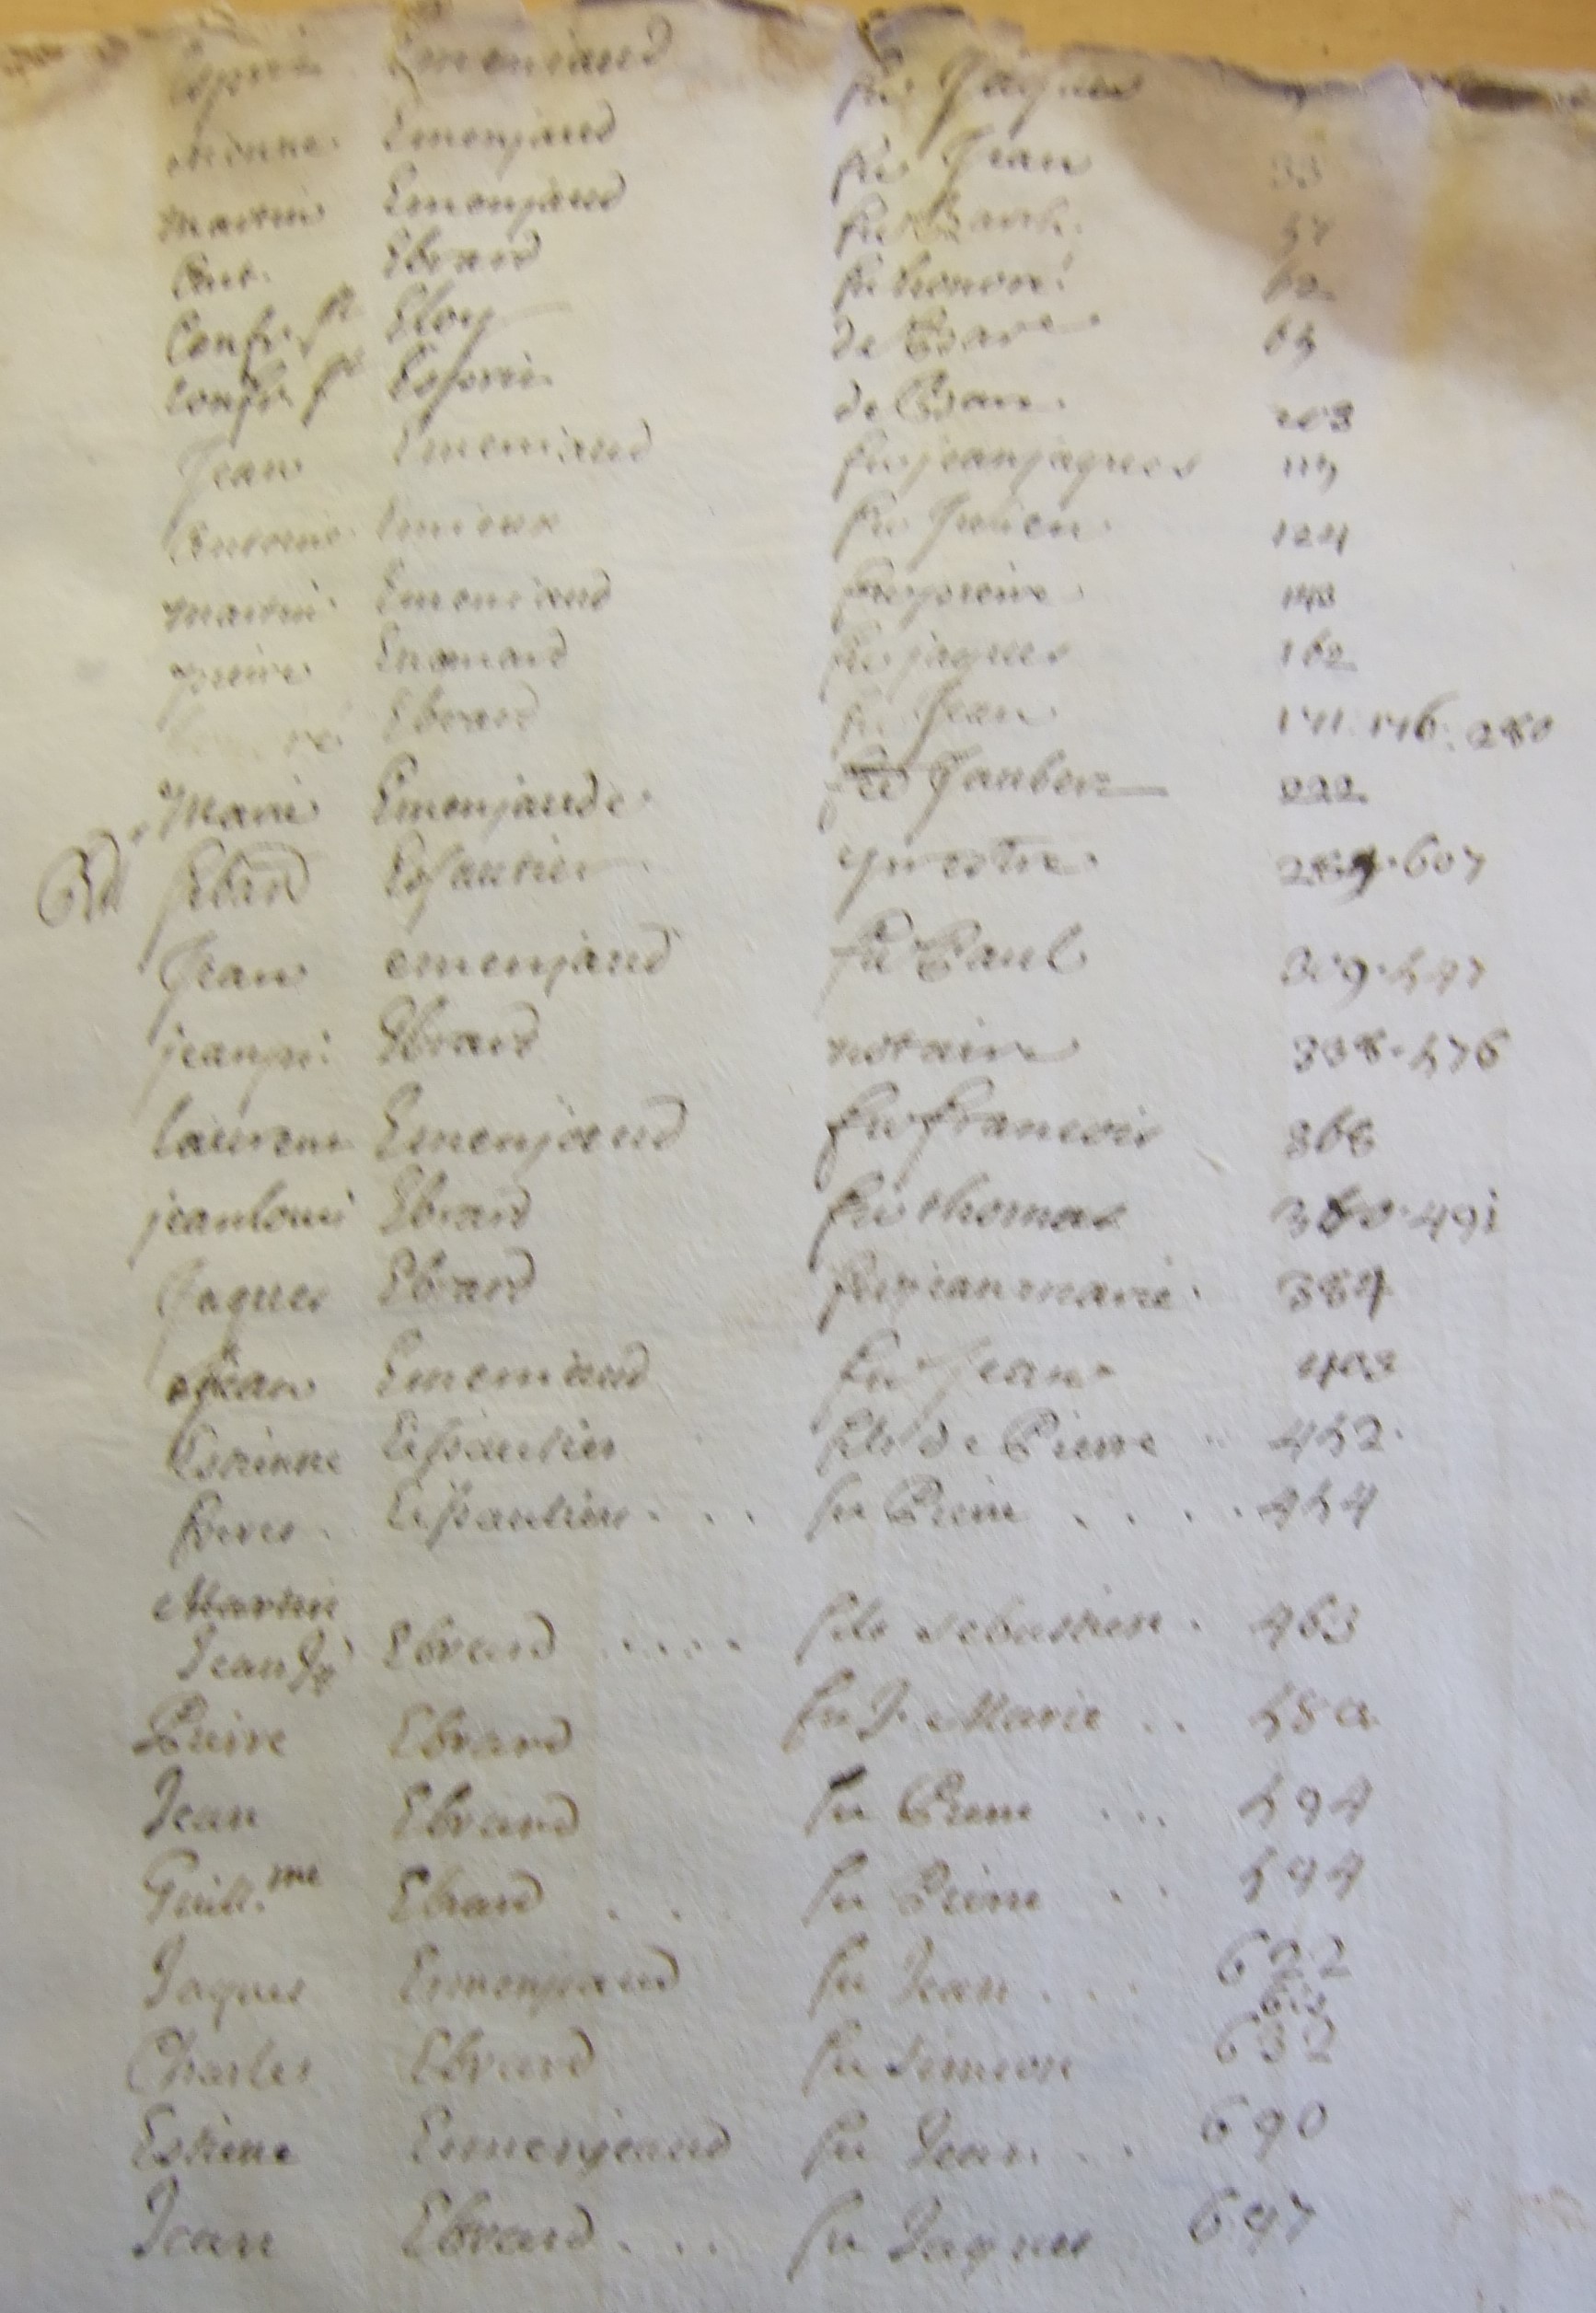 Esprit Emenjaud fu Jaques
Etienne Emenjaud fu Jean 33
martin Emenjaud fu Barth. 57
Ant. Ebrard fu honoré 62
Confr. st Eloy de 65
Confr. st Esprit de 103
Jean Emeniaud fu jean jaques 115
Antoine Emieux fu Julien 124
martin Emeniaud fu pierre 143
pierre fu jaques 162
Ebrard fu Jean 171. 176. 280
Marie Emenjaude Jaubert 222
Sebast Essautier prestre 607
Jean emenjaud fu Paul 309. 447
jean pre Ebrard notaire 338. 476
laurent Emenjaud fu francois 368
jean louis Ebrard fu thomas 491
Jaques Ebrard fu jean marie 384
Jean Emeniaud fu Jean 403
Estienne Eissautier fils de Pierre .. 452.
freres Eissautier . . . fu Pierre . . . . 454
Martin
Jean Jq Ebrard ..... fils sebastien . 463
Pierre Ebrard fu J. Marie .. 480
Jean Ebrard fu Pierre ... 494
Guill.me Ebrard . . . fu Pierre . . 494
Jaques Emmenjaud fu Jean . . . 622
bis
Charles Ebrard fu simeon 632
Estiene Emmenjeaud fu Jean ... 690
Jean Ebrard . . . fu Jaques 697